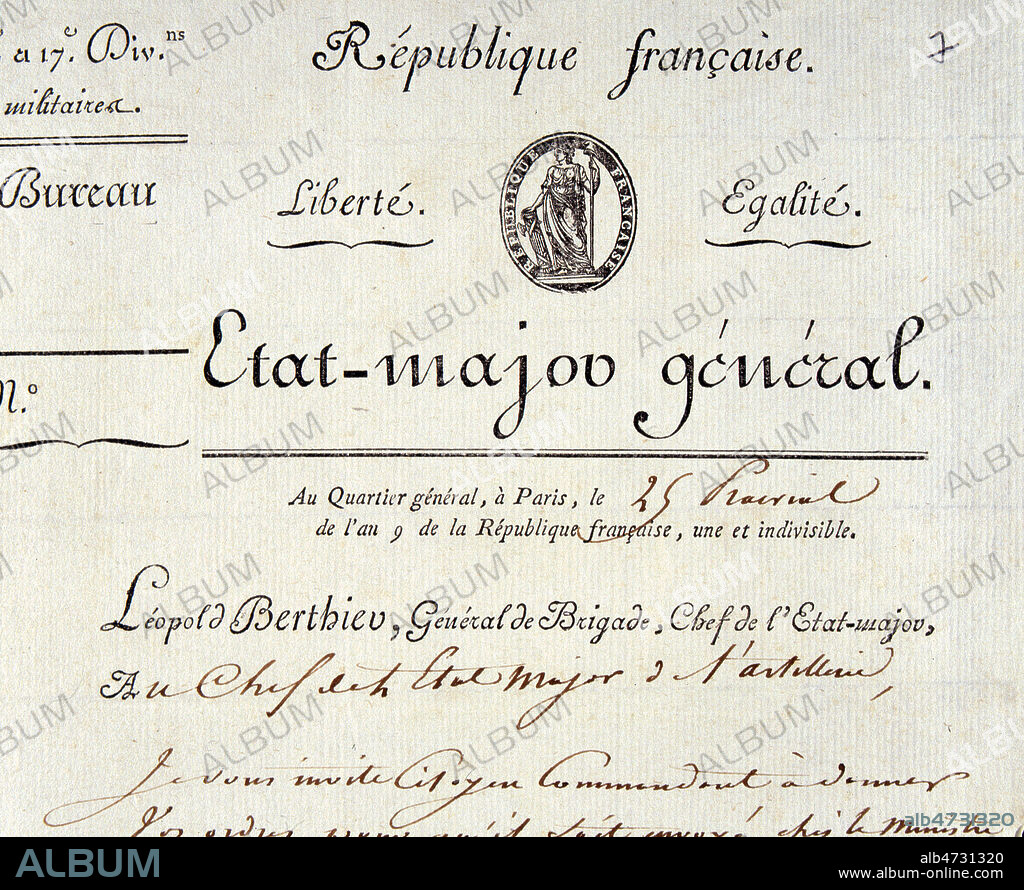 à 17.e Div.ns
militaires.
Bureau
N.o
République française.
7
Liberté.
RÉPUBLIQUE FRANÇAISE
Egalité.
Etat-major général.
Au Quartier général, à Paris, le 25 Prairial
de l'an 9 de la République française, une et indivisible.
Léopold Berthier, Général de Brigade, Chef de l'Etat-major,
Au Chef de l'Etat Major de l'artillerie,
Je vous invite Citoyen Commandant à donner
vos ordres pour qu'il soit envoyé chez le Ministre
ALBUM
alb4731320
alb4731320
www.album-online.com